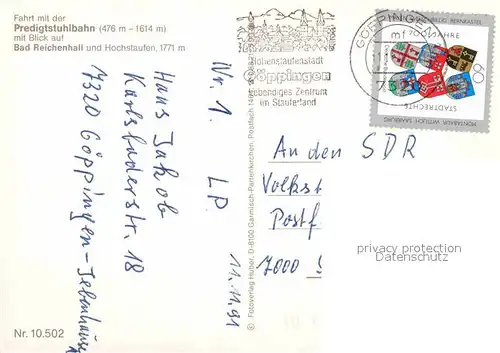 Fahrt mit der
Predigtstuhlbahn (476 m – 1614 m)
mit Blick auf
Bad Reichenhall und Hochstaufen, 1771 m
Hans Jakob
Karlsbaderstr. 18
7320 Göppingen-Jebenhausen
Nr. 1. LP.
11.11.91
Nr. 10.502
© Fotoverlag Huber, D-8100 Garmisch-Partenkirchen, Postfach
Hohenstaufenstadt
Göppingen
lebendiges Zentrum
im Stauferland
GÖPPINGEN
mf
700 JAHRE
BERNKASTEL
60
STADTRECHTE
MONTABAUR WITTLICH SAARBURG
An den SDR
Volkst
Postf
7000
privacy protection
DavidKalender.com